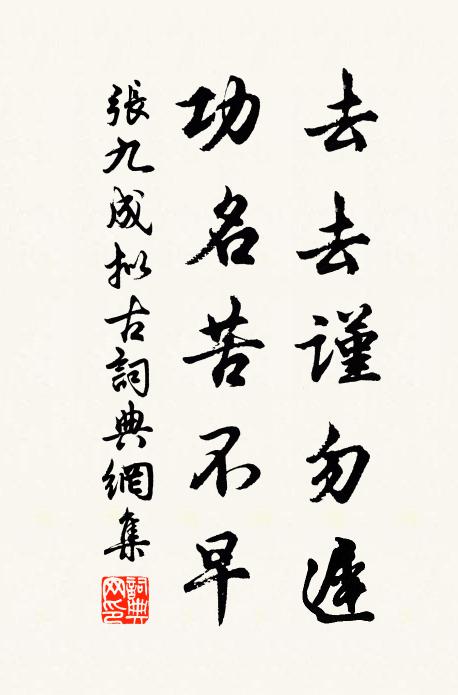 去去謹勿遲
功名苦不早
張九成拟古詞典網集
詞典網印